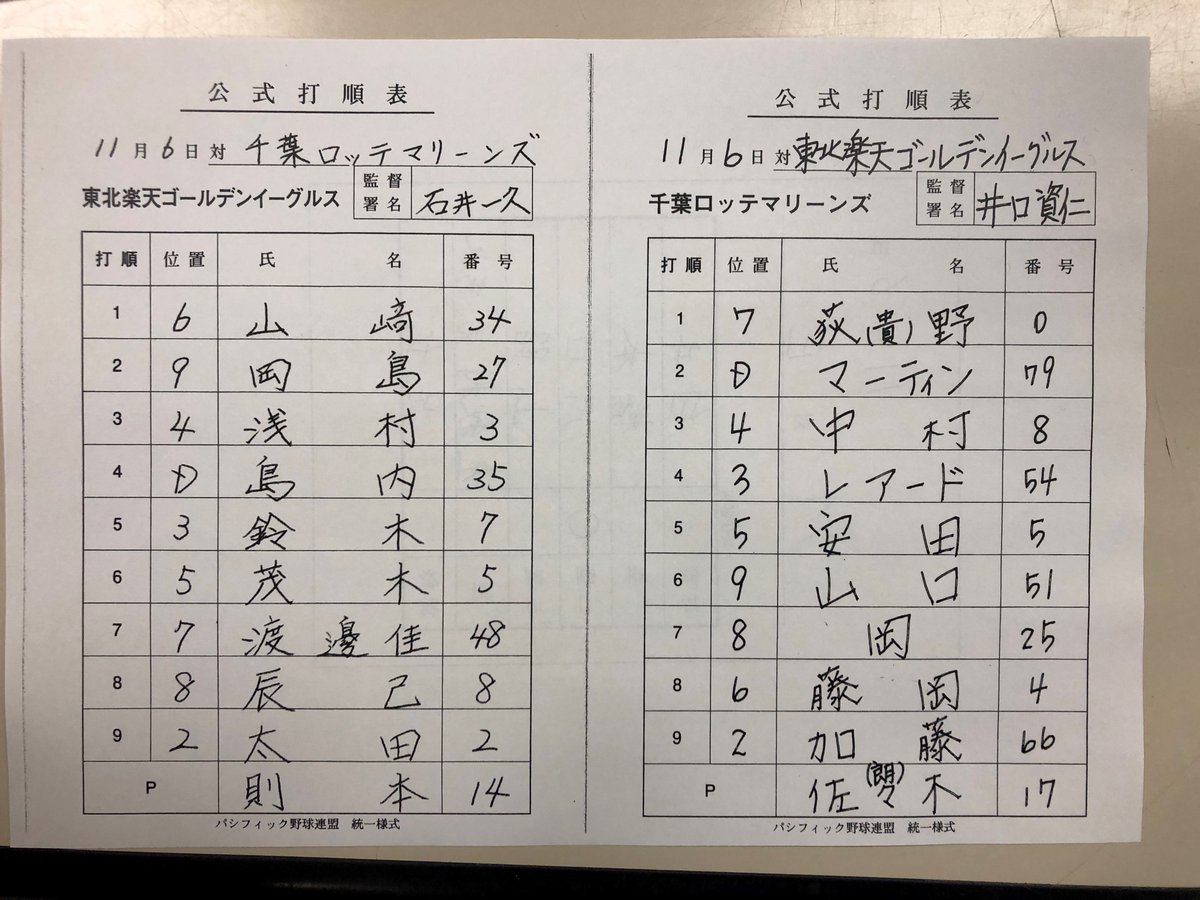 公式打順表
11月6日対 千葉ロッテマリーンズ
東北楽天ゴールデンイーグルス 監督署名 石井一久
打順 位置 氏名 番号
1 6 山﨑 34
2 9 岡島 27
3 4 浅村 3
4 D 島内 35
5 3 鈴木 7
6 5 茂木 5
7 7 渡邊佳 48
8 8 辰己 8
9 2 太田 2
P 則本 14
パシフィック野球連盟 統一様式
公式打順表
11月6日対 東北楽天ゴールデンイーグルス
千葉ロッテマリーンズ 監督署名 井口資仁
打順 位置 氏名 番号
1 7 荻(貴)野 0
2 D マーティン 79
3 4 中村 8
4 3 レアード 54
5 5 安田 5
6 9 山口 51
7 8 岡 25
8 6 藤岡 4
9 2 加藤 66
P 佐々(朗)木 17
パシフィック野球連盟 統一様式